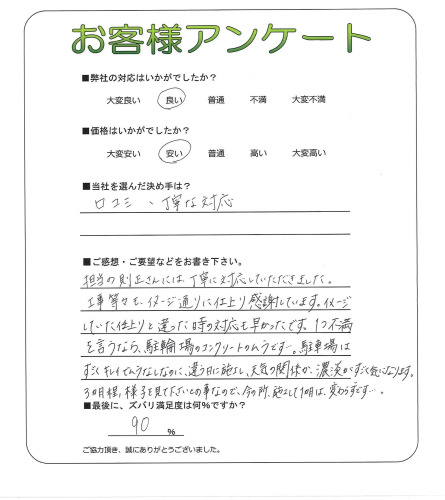 お客様アンケート
■弊社の対応はいかがでしたか？
大変良い 良い 普通 不満 大変不満
■価格はいかがでしたか？
大変安い 安い 普通 高い 大変高い
■当社を選んだ決め手は？
口コミ、丁寧な対応
■ご感想・ご要望などをお書き下さい。
担当の則正さんには、丁寧に対応していただきました。
工事等々も、イメージ通りに仕上り感謝しています。イメージ
していた仕上りと違った時の対応も早かったです。1つ不満
を言うなら、駐輪場のコンクリートのムラです…。駐車場は
すごくキレイでムラなしなのに、違う日に施工し、天気の関係か、濃淡がすごく気になります。
3ヵ月程、様子を見て下さいとの事なので、今の所、施工して1ヵ月は、変わらずです…。
■最後に、ズバリ満足度は何％ですか？
90 ％
ご協力頂き、誠にありがとうございました。